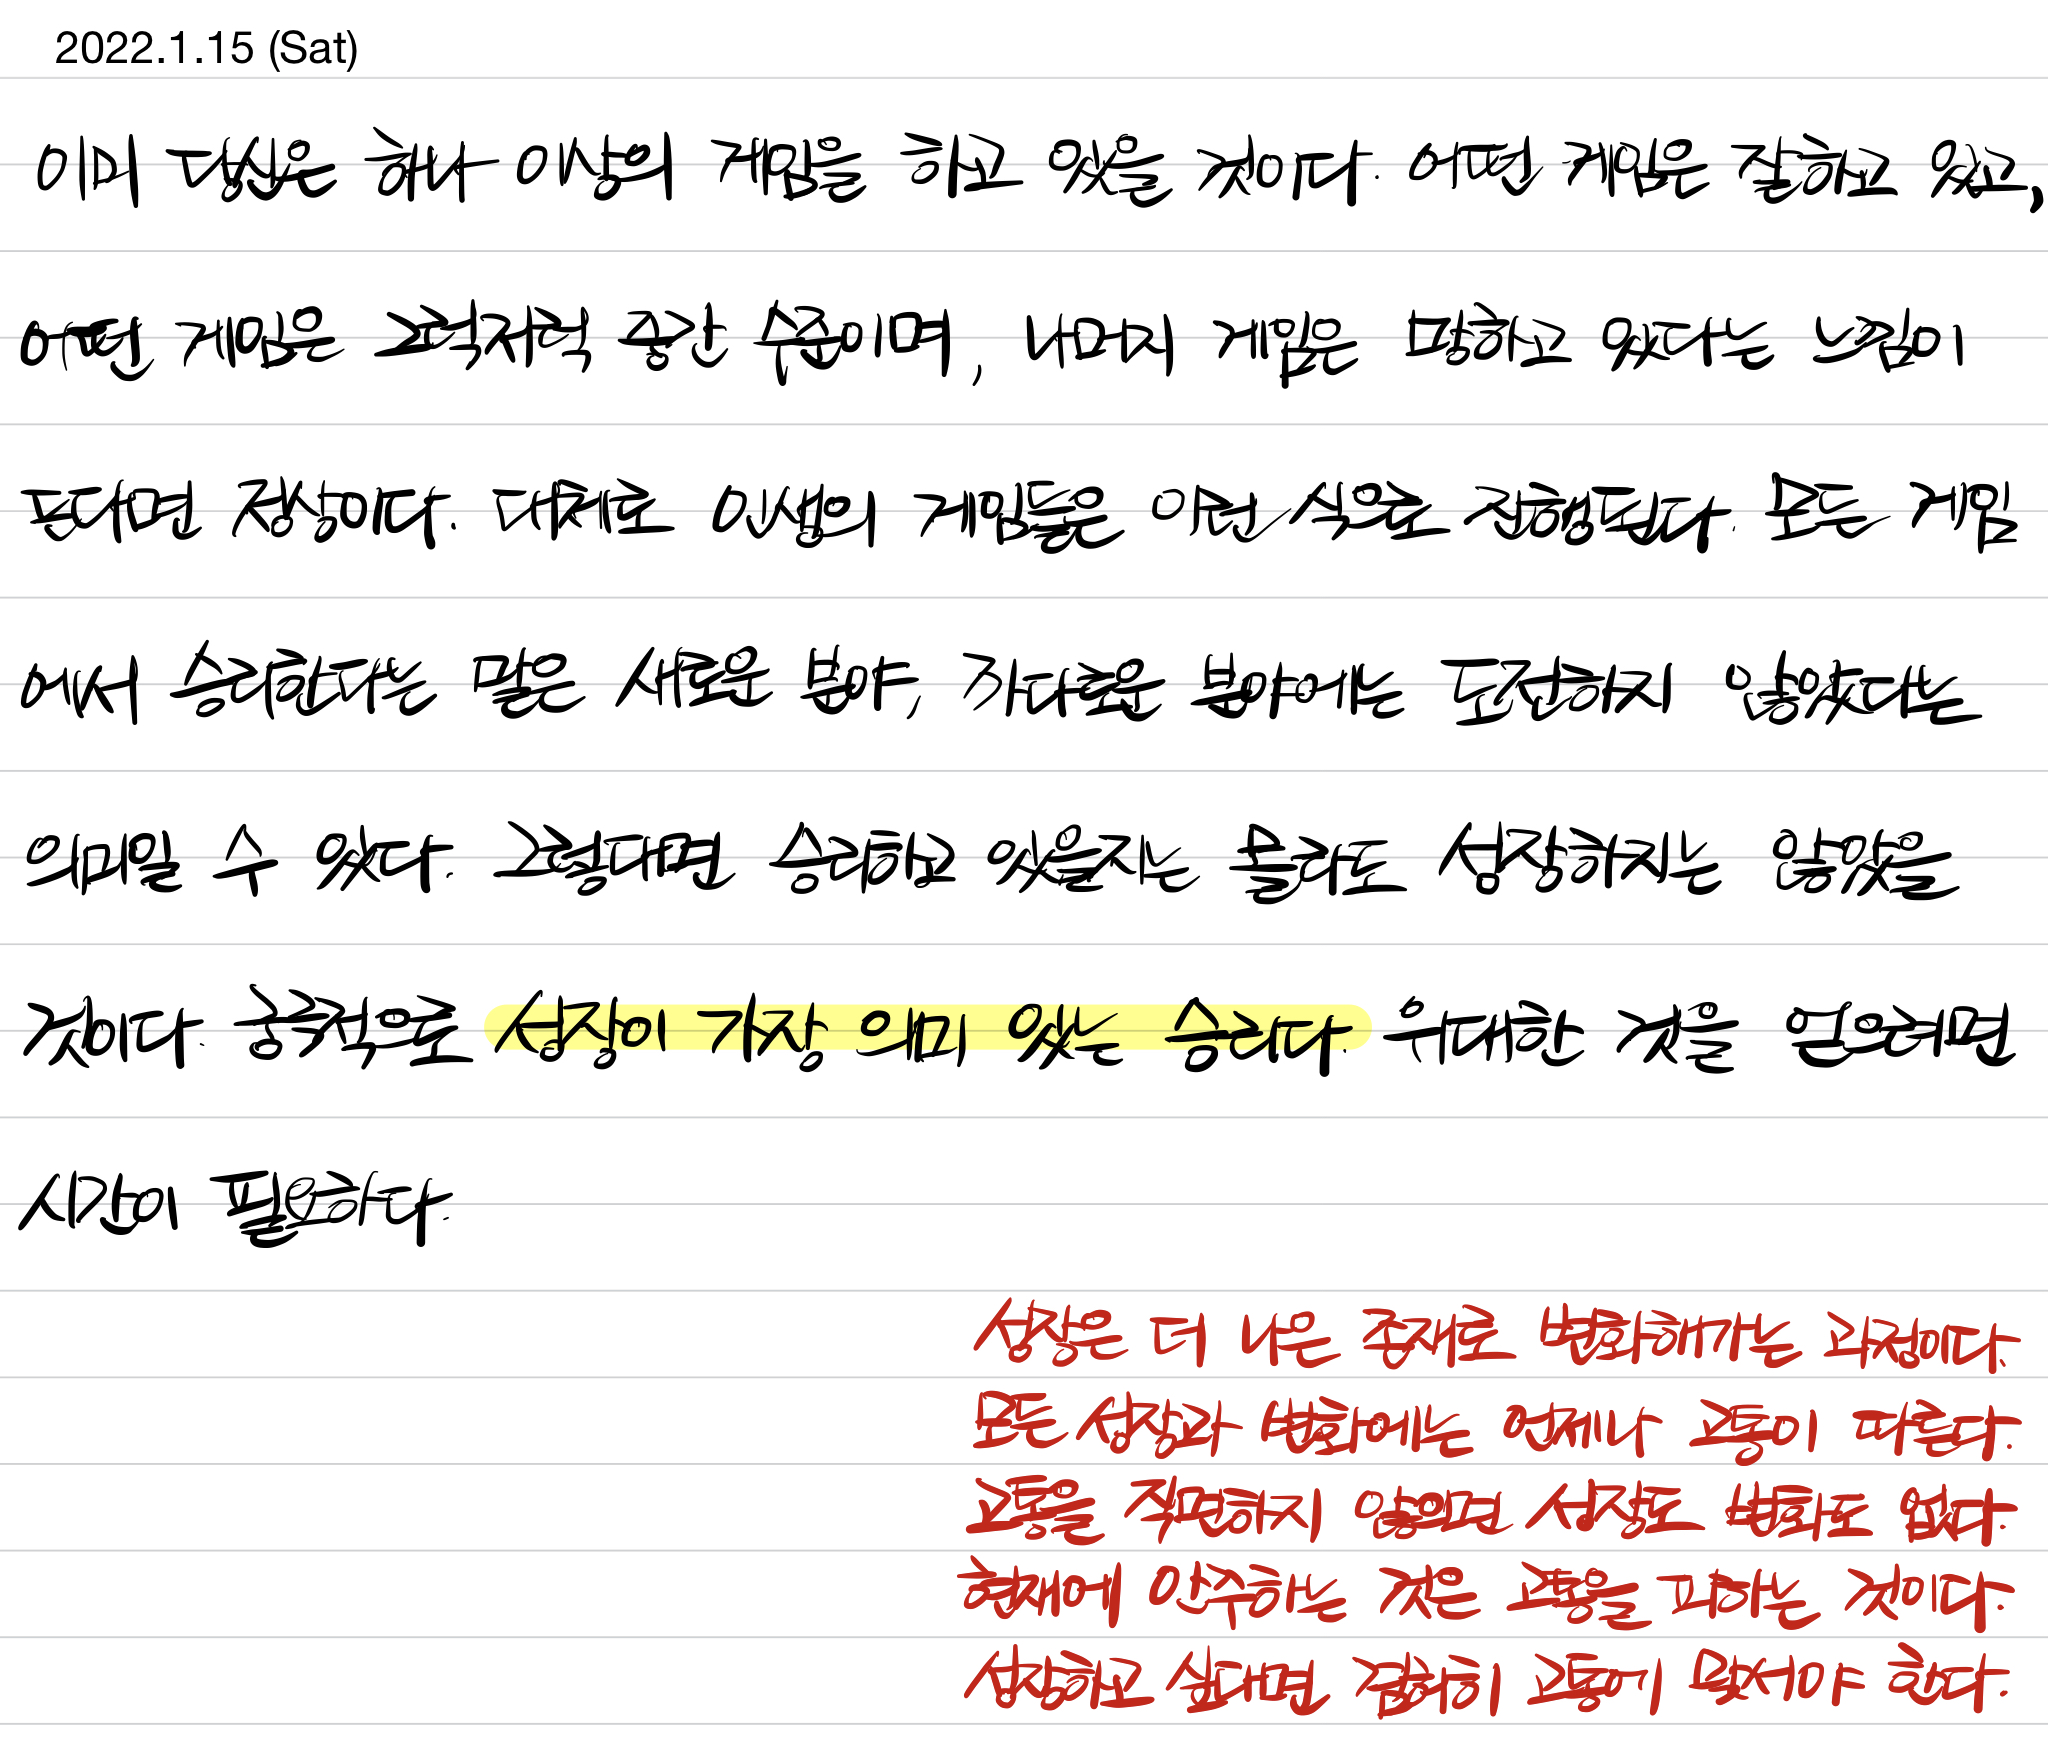 2022.1.15 (Sat)
이미 당신은 하나 이상의 게임을 하고 있을 것이다. 어떤 게임은 잘하고 있고,
어떤 게임은 그럭저럭 중간 수준이며, 나머지 게임은 망하고 있다는 느낌이
든다면 정상이다. 대체로 인생의 게임들은 이런 식으로 진행된다. 모든 게임
에서 승리한다는 말은 새로운 분야, 까다로운 분야에는 도전하지 않았다는
의미일 수 있다. 그렇다면 승리하고 있을지는 몰라도 성장하지는 않았을
것이다. 궁극적으로 성장이 가장 의미 있는 승리다. 위대한 것을 얻으려면
시간이 필요하다.
성장은 더 나은 존재로 변화해가는 과정이다.
모든 성장과 변화에는 언제나 고통이 따른다.
고통을 직면하지 않으면 성장도 변화도 없다.
현재에 안주하는 것은 고통을 피하는 것이다.
성장하고 싶다면 과감히 고통에 맞서야 한다.